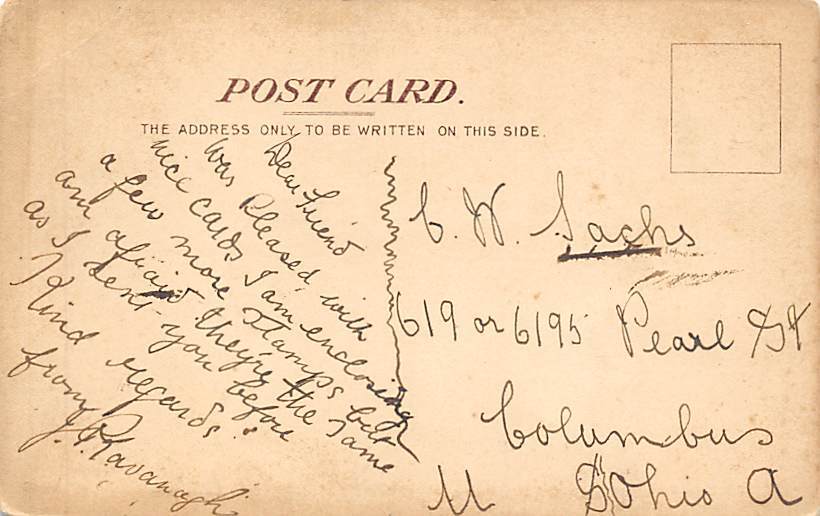 POST CARD.
THE ADDRESS ONLY TO BE WRITTEN ON THIS SIDE.
Dear Friend
Was Pleased with
nice cards I am enclosing
a few more stamps but
am afraid they're the same
as I sent you before
Kind regards
from
J. P. Kavanagh
C. W. Sachs
619 or 6195 Pearl St
Columbus
U S Ohio A